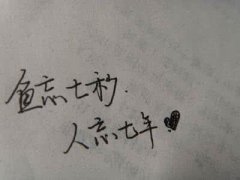 鱼忘七秒.
人忘七年.